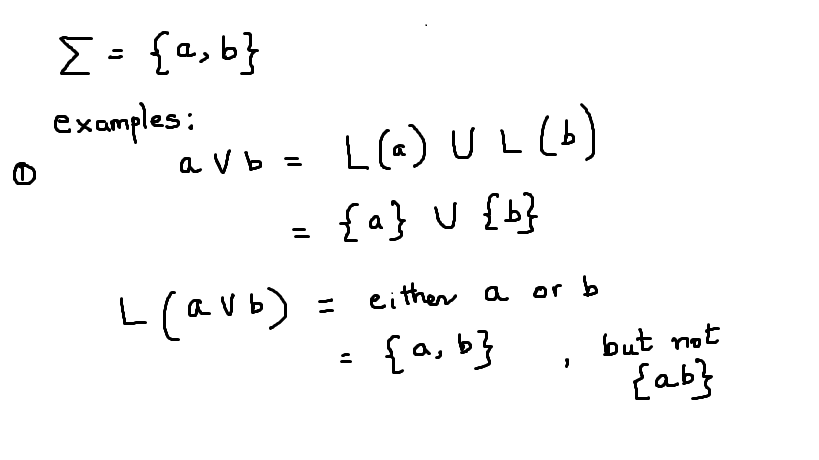 Σ = {a, b}
examples:
① a ∨ b = L(a) ∪ L(b)
= {a} ∪ {b}
L(a ∨ b) = either a or b
= {a, b} , but not
{ab}